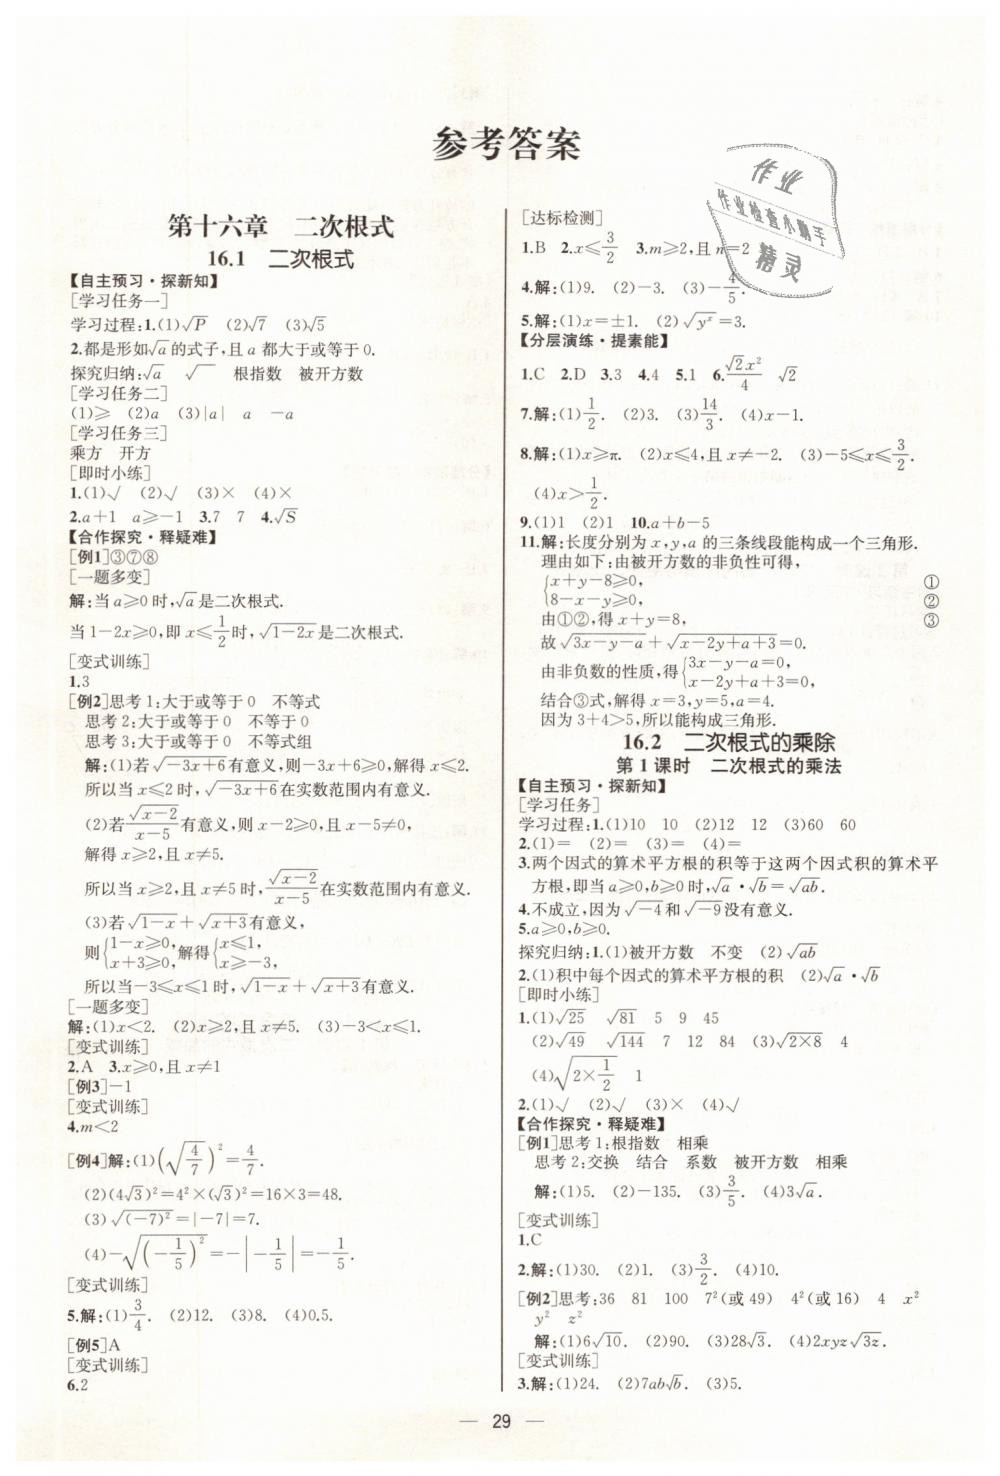 参考答案
作业
作业检查小助手
精灵
第十六章　二次根式
16.1　二次根式
【自主预习·探新知】
[学习任务一]
学习过程:1.(1)√P　(2)√7　(3)√5
2.都是形如√a的式子,且 a 都大于或等于0.
探究归纳:√a　√　根指数　被开方数
[学习任务二]
(1)≥　(2)a　(3)|a|　a　-a
[学习任务三]
乘方　开方
[即时小练]
1.(1)√　(2)√　(3)×　(4)×
2.a+1　a≥-1　3.7　7　4.√S
【合作探究·释疑难】
[例1]③⑦⑧
[一题多变]
解:当 a≥0时,√a是二次根式.
当 1-2x≥0,即 x≤1/2时,√(1-2x)是二次根式.
[变式训练]
1.3
[例2]思考 1:大于或等于 0　不等式
思考 2:大于或等于 0　不等于 0
思考 3:大于或等于 0　不等式组
解:(1)若√(-3x+6)有意义,则-3x+6≥0,解得 x≤2.
所以当 x≤2 时,√(-3x+6)在实数范围内有意义.
(2)若√(x-2)/(x-5)有意义,则 x-2≥0,且 x-5≠0,
解得 x≥2,且 x≠5.
所以当 x≥2,且 x≠5 时,√(x-2)/(x-5)在实数范围内有意义.
(3)若√(1-x)+√(x+3)有意义,
则{1-x≥0, x+3≥0, 解得{x≤1, x≥-3,
所以当-3≤x≤1 时,√(1-x)+√(x+3)有意义.
[一题多变]
解:(1)x<2.　(2)x≥2,且 x≠5.　(3)-3<x≤1.
[变式训练]
2.A　3.x≥0,且 x≠1
[例3]-1
[变式训练]
4.m<2
[例4]解:(1)(√(4/7))²=4/7.
(2)(4√3)²=4²×(√3)²=16×3=48.
(3)√((-7)²)=|-7|=7.
(4)-√((-1/5)²)=-|-1/5|=-1/5.
[变式训练]
5.解:(1)3/4.　(2)12.　(3)8.　(4)0.5.
[例5]A
[变式训练]
6.2
[达标检测]
1.B　2.x≤3/2　3.m≥2,且 n=2
4.解:(1)9.　(2)-3.　(3)-4/5.
5.解:(1)x=±1.　(2)√(yˣ)=3.
【分层演练·提素能】
1.C　2.D　3.3　4.4　5.1　6.√2x²/4　√2
7.解:(1)1/2.　(2)3.　(3)14/3.　(4)x-1.
8.解:(1)x≥π.　(2)x≤4,且 x≠-2.　(3)-5≤x≤3/2.
(4)x>1/2.
9.(1)1　(2)1　10.a+b-5
11.解:长度分别为 x,y,a 的三条线段能构成一个三角形.
理由如下:由被开方数的非负性可得,
{x+y-8≥0,　①
8-x-y≥0,　②
由①②,得 x+y=8,　③
故√(3x-y-a)+√(x-2y+a+3)=0.
由非负数的性质,得{3x-y-a=0,
x-2y+a+3=0,
结合③式,解得 x=3,y=5,a=4.
因为 3+4>5,所以能构成三角形.
16.2　二次根式的乘除
第 1 课时　二次根式的乘法
【自主预习·探新知】
[学习任务]
学习过程:1.(1)10　10　(2)12　12　(3)60　60
2.(1)=　(2)=　(3)=　(4)=
3.两个因式的算术平方根的积等于这两个因式积的算术平
方根,即当 a≥0,b≥0 时,√a·√b=√(ab).
4.不成立,因为√(-4)和√(-9)没有意义.
5.a≥0,b≥0.
探究归纳:1.(1)被开方数　不变　(2)√(ab)
2.(1)积中每个因式的算术平方根的积　(2)√a·√b
[即时小练]
1.(1)√25　√81　5　9　45
(2)√49　√144　7　12　84　(3)√(2×8)　4
(4)√(2×1/2)　1
2.(1)√　(2)√　(3)×　(4)√
【合作探究·释疑难】
[例1]思考 1:根指数　相乘
思考 2:交换　结合　系数　被开方数　相乘
解:(1)5.　(2)-135.　(3)3/5.　(4)3√a.
[变式训练]
1.C
2.解:(1)30.　(2)1.　(3)3/2.　(4)10.
[例2]思考:36　81　100　7²(或 49)　4²(或 16)　4　x²
y²　z²
解:(1)6√10.　(2)90.　(3)28√3.　(4)2xyz√(3z).
[变式训练]
3.解:(1)24.　(2)7ab√b.　(3)5.
— 29 —